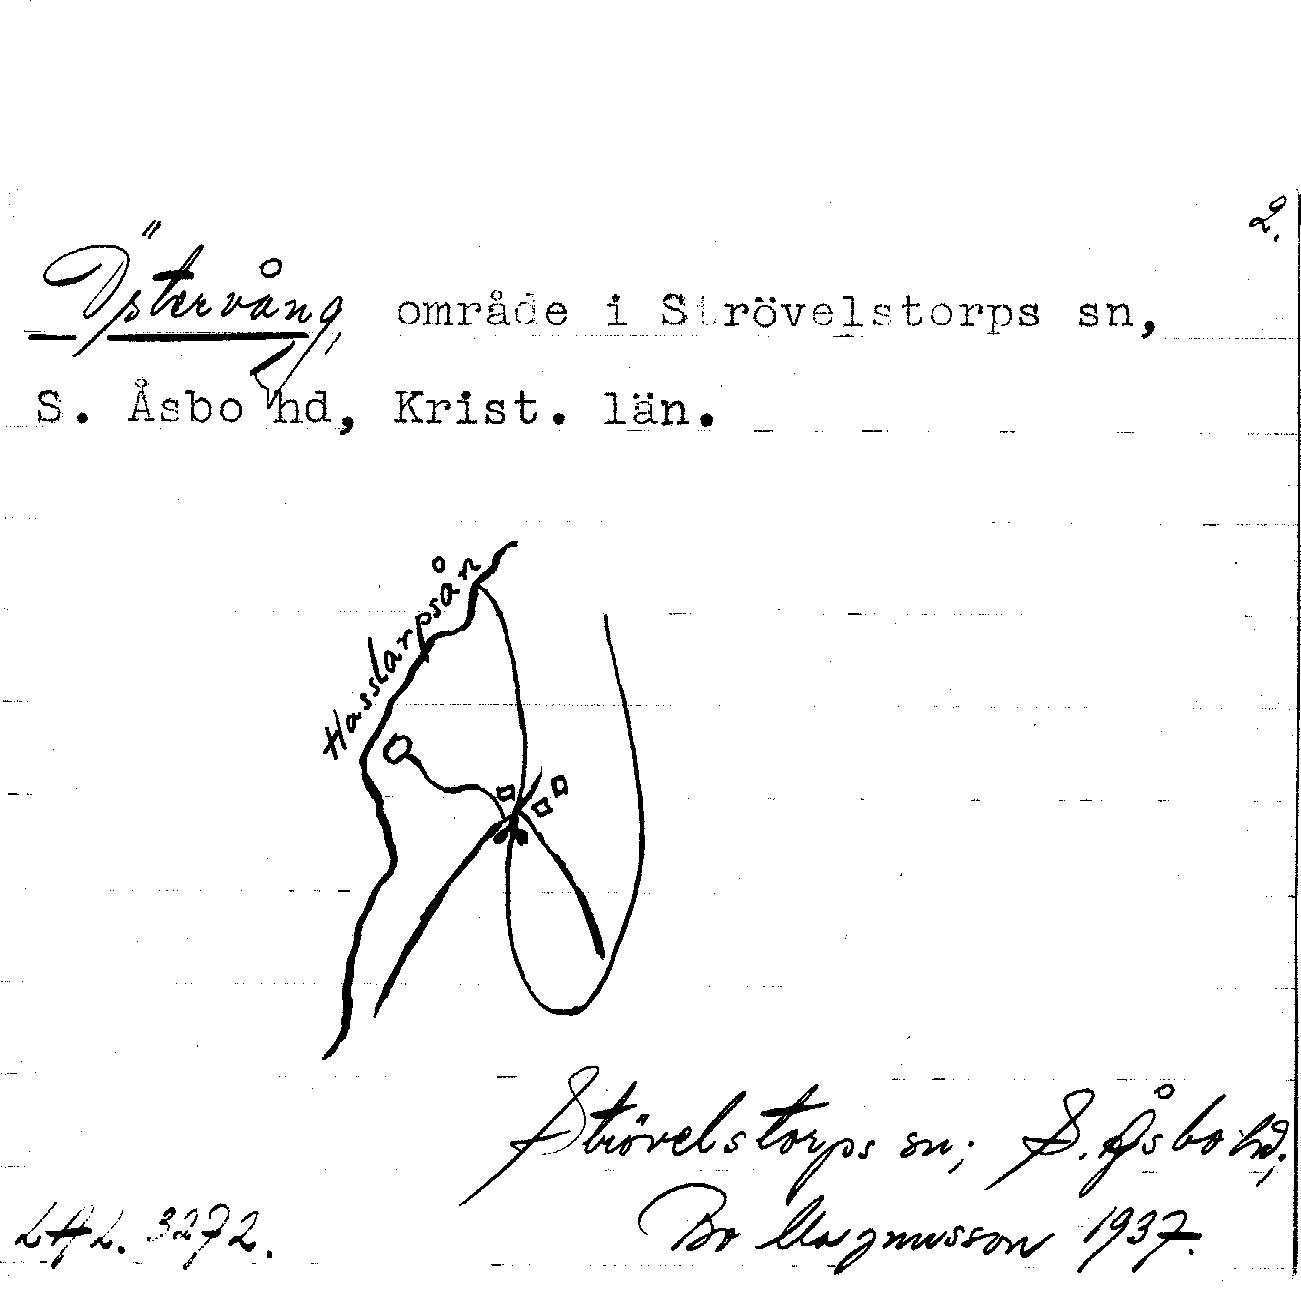 2.
Östervång, område i Strövelstorps sn,
S. Åsbo hd, Krist. län.
Hasslarpsån
Strövelstorps sn; S. Åsbo hd,
LAL. 3272.
Bo Magnusson 1937.